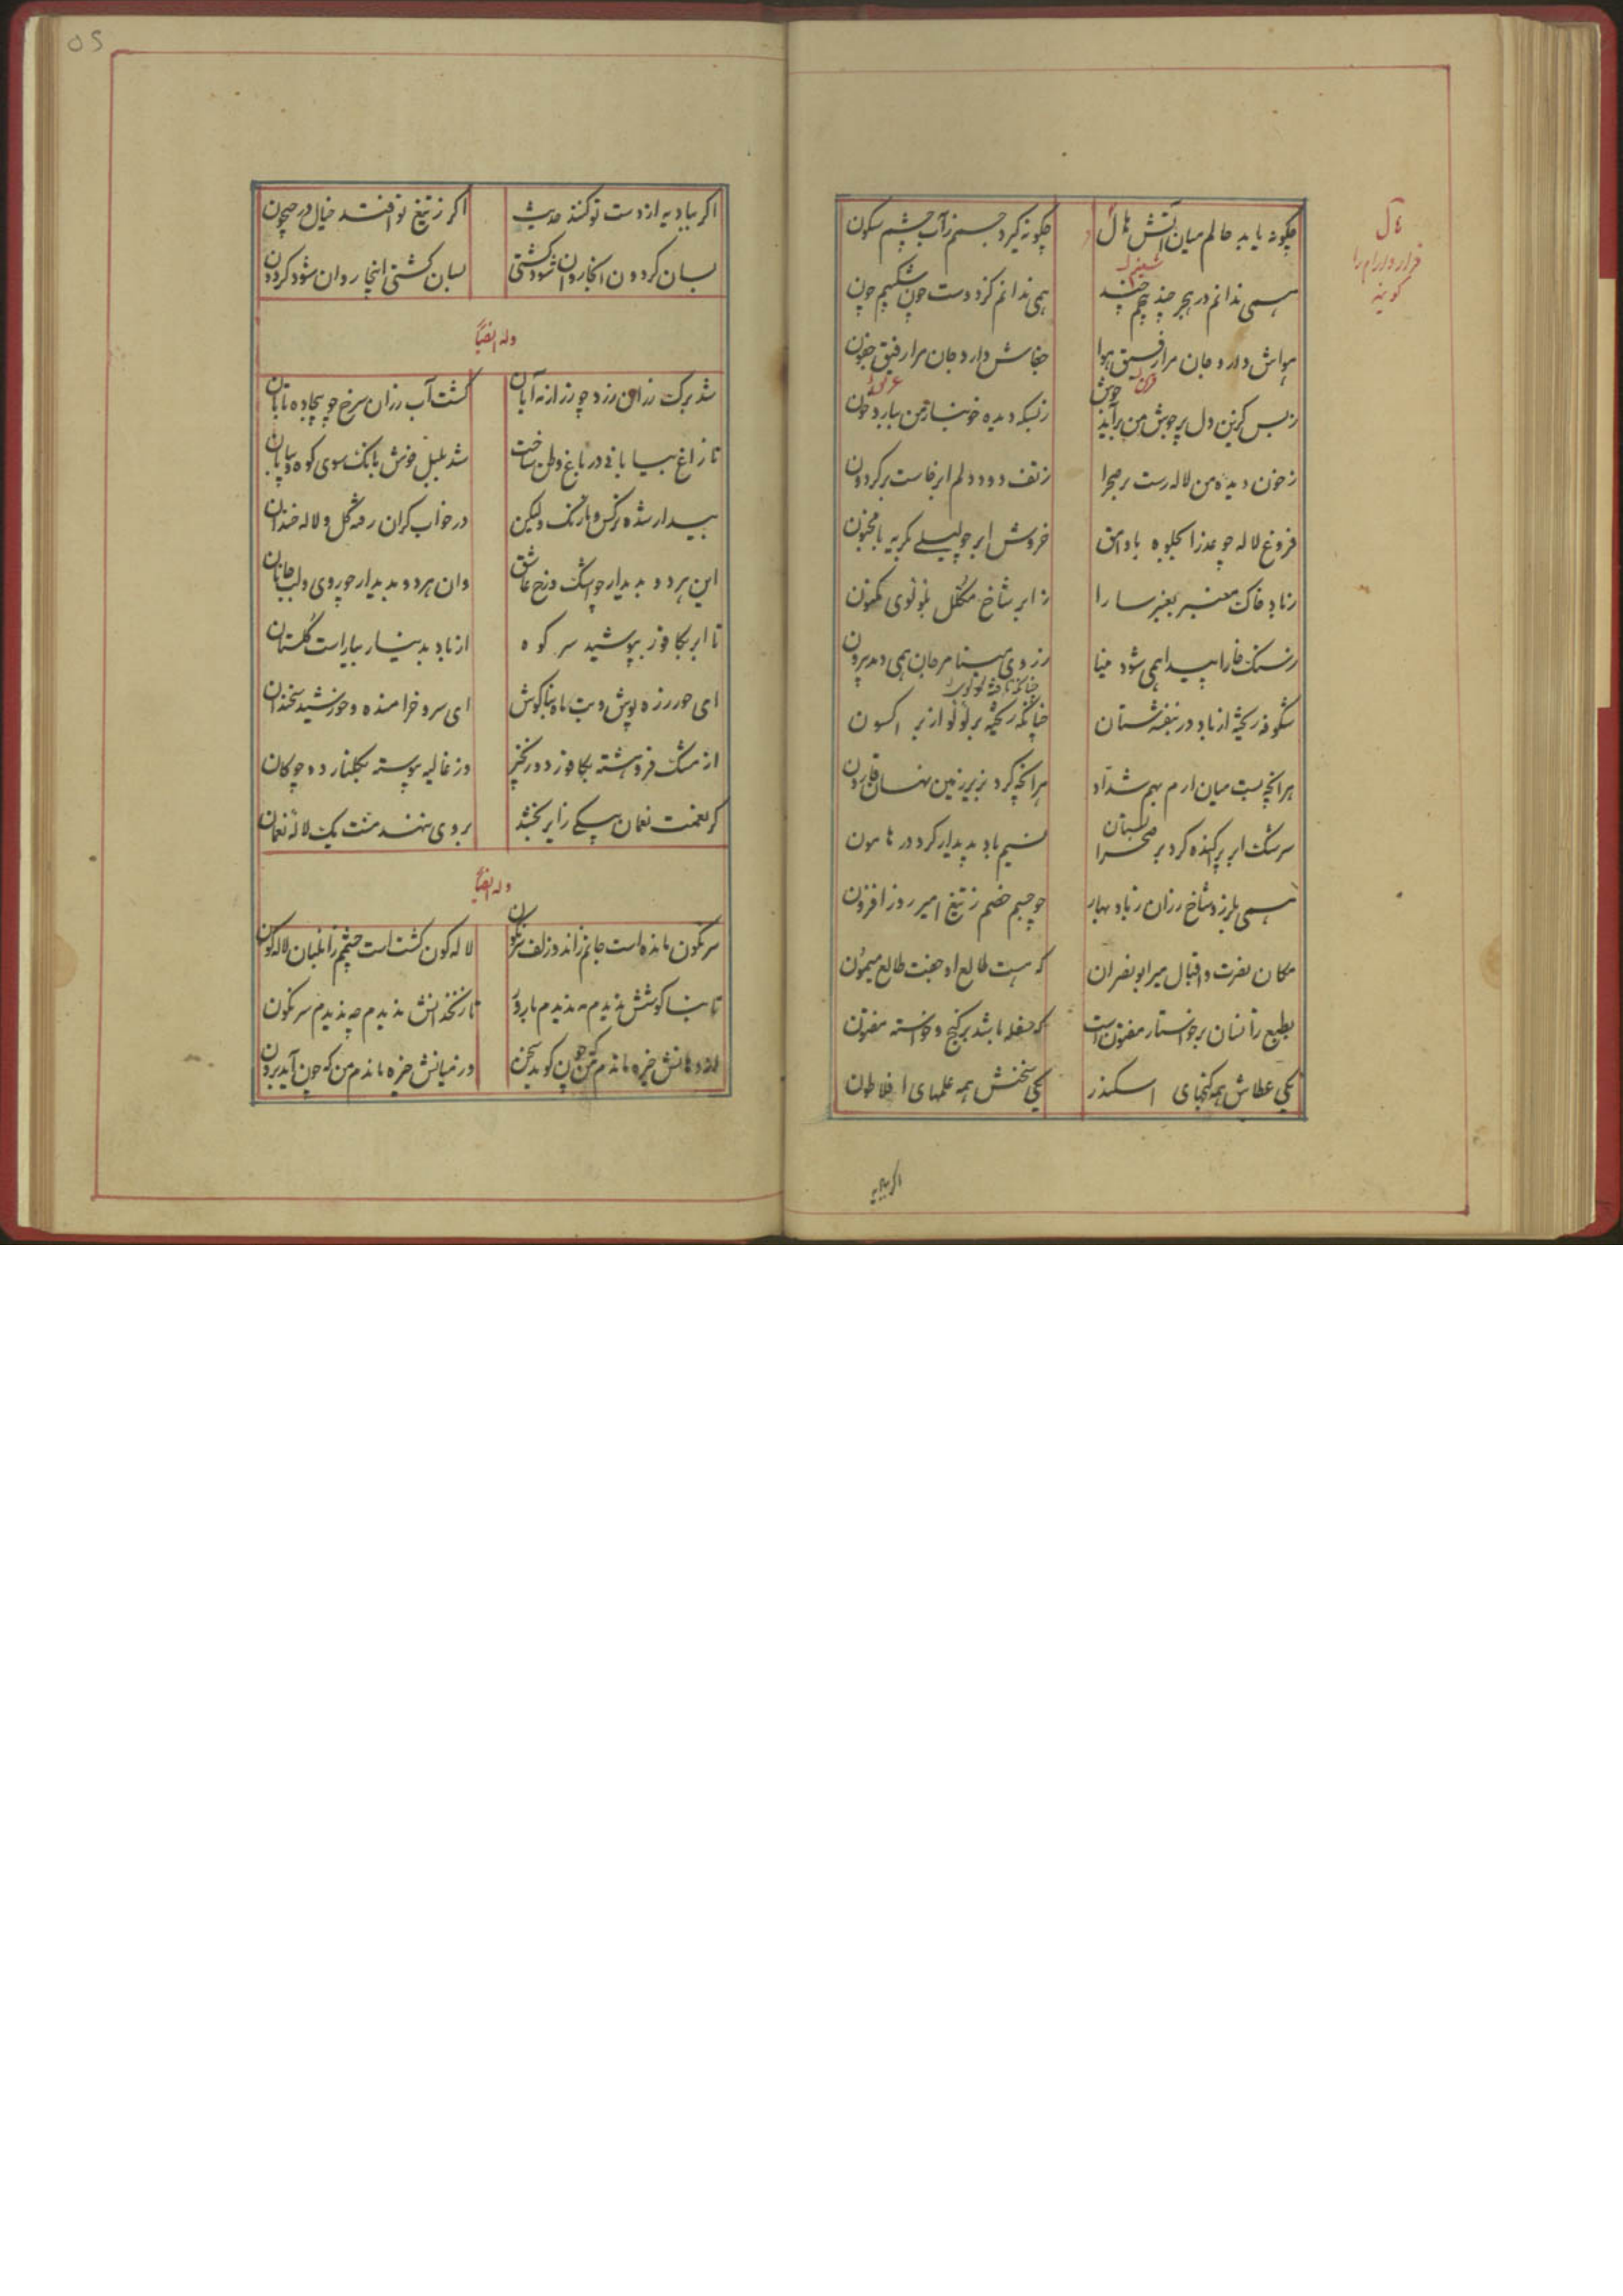 چکونه یابد حالم میان آتش هال
چکونه کیرد جسمم ز آب چشم سکون
همی ندانم در هجر چند چم چند
همی ندانم کز دوست چون شکیم چون
هواش دارد جان مرا رفیق هوا
جفاش دارد جان مرا رفیق جنون
ز بس کزین دل پر جوش من برآید جوش
ز بسکه دیده خونبار من ببارد خون
ز خون دیده من لاله رست بر صحرا
ز تف دود دلم ابر خاست بر کردون
فروغ لاله چو عذرا بجلوه با وامق
خروش ابر چو لیلی بکریه با مجنون
ز باد خاک معنبر بعنبر سارا
ز ابر شاخ مکلل بلؤلوی مکنون
ز سنک خارا پیدا همی شود مینا
ز روی مینا مرجان همی دمد بیرون
شکوفه ریخته از باد در بنفشستان
چنانکه ریخته بر لؤلؤ از بر اکسون
هر آنچه بست میان ارم بهم شداد
هر آنچه کرد بزیر زمین نهان قارون
سرشک ابر پراکنده کرد بر صحرا
نسیم باد پدیدار کرد در هامون
همی بلرزد شاخ رزان ز باد بهار
چو جسم خصم ز تیغ امیر روز افزون
مکان نصرت و اقبال میر ابونصر آن
که هست طالع او جفت طالع میمون
بطبع زانسان بر خواستار مفتون است
که سفله باشد بر کنج و خواسته مفتون
یکی عطاش همه کنجهای اسکندر
یکی سخنش همه علمهای افلاطون
هال
قرار و آرام را
کویند
اکر ببادیه
اکر ببادیه از دست تو کنند حدیث
اکر ز تیغ تو افتد خیال در جیحون
بسان کردون آنجا روان شود کشتی
بسان کشتی اینجا روان شود کردون
وله ایضاً
شد برک رزان زرد چو زر از مه آبان
کشت آب رزان سرخ چو بیجاده تابان
تا زاغ بیابانی در باغ وطن ساخت
شد بلبل خوش بانک سوی کوه و بیابان
بیدار شده نرکس و نارنک ولیکن
در خواب کران رفته کل و لاله خندان
این هر دو بدیدار چو اشک و رخ عاشق
وان هر دو بدیدار چو روی و لب جانان
تا ابر بکافور بپوشید سر کوه
از باد بدینار بیاراست کلستان
ای حور زره پوش و بت ماه بناکوش
ای سرو خرامنده و خورشید سخندان
از مشک فروهشته بکافور دو زنجیر
وز غالیه پیوسته بکلنار دو چوکان
کر نعمت نعمان بیکی زایر بخشد
بر وی ننهد منت یک لاله نعمان
وله ایضاً
سرنکون مانده است جانم زاند و زلف سرنکون
لاله کون کشت است چشمم زان لبان لاله کون
تا بناکوشش ندیدم مه ندیدم بارور
تا زنخدانش ندیدم چه ندیدم سرنکون
در دهانش خیره ماندم من که چون کوید سخن
در میانش خیره ماندم من که چون آید برون